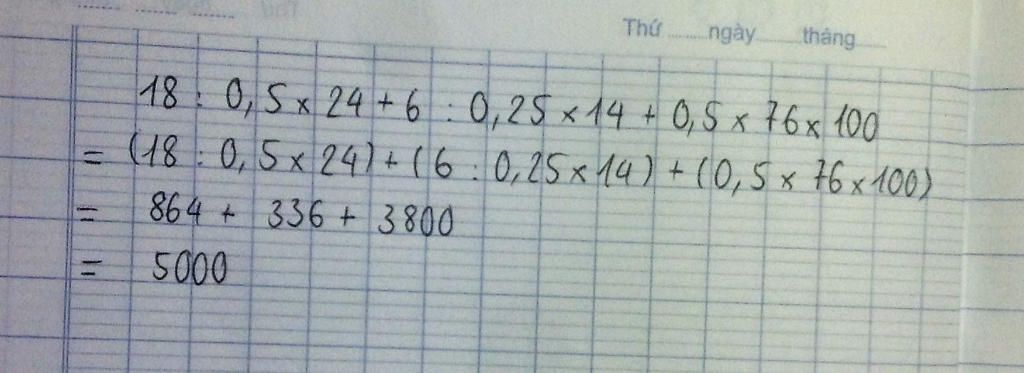 Thứ ........ ngày ........ tháng ........
18 : 0,5 × 24 + 6 : 0,25 × 14 + 0,5 × 76 × 100
= (18 : 0,5 × 24) + (6 : 0,25 × 14) + (0,5 × 76 × 100)
= 864 + 336 + 3800
= 5000